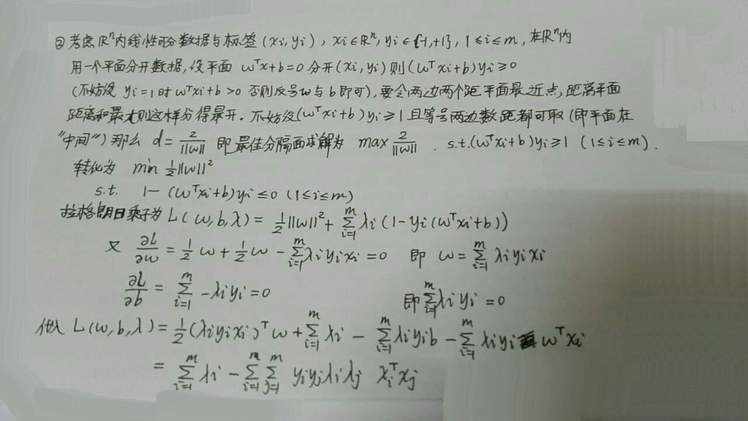 ② 考虑 ℝⁿ内线性可分数据与标签 (xi, yi), xi∈ℝⁿ, yi∈{-1,+1}, 1≤i≤m, 在ℝⁿ内
用一个平面分开数据, 设平面 wᵀx+b=0 分开(xi,yi) 则(wᵀxi+b)yi≥0
(不妨设 yi=1时 wᵀxi+b>0 否则反号w与b即可), 要令两边两个距平面最近点, 距离平面
距离和最大则这样分得最开. 不妨设(wᵀxi+b)yi≥1 且等号两边数据都可取 (即平面在
"中间") 那么 d = 2/||w|| 即最佳分隔面求解为 max 2/||w|| . s.t.(wᵀxi+b)yi≥1 (1≤i≤m).
转化为 min ½||w||²
s.t. 1-(wᵀxi+b)yi≤0 (1≤i≤m)
拉格朗日乘子为 L(w,b,λ) = ½||w||² + Σ_{i=1}^{m} λi(1-yi(wᵀxi+b))
又 ∂L/∂w = ½w + ½w - Σ_{i=1}^{m} λiyixi = 0 即 w = Σ_{i=1}^{m} λiyixi
∂L/∂b = Σ_{i=1}^{m} -λiyi = 0 即 Σ_{i=1}^{m} λiyi = 0
L(w,b,λ) = ½(λiyixi)ᵀw + Σ_{i=1}^{m} λi - Σ_{i=1}^{m} λiyib - Σ_{i=1}^{m} λiyi wᵀxi
= Σ_{i=1}^{m} λi - Σ_{i=1}^{m} Σ_{j=1}^{m} yiyjλiλj xiᵀxj